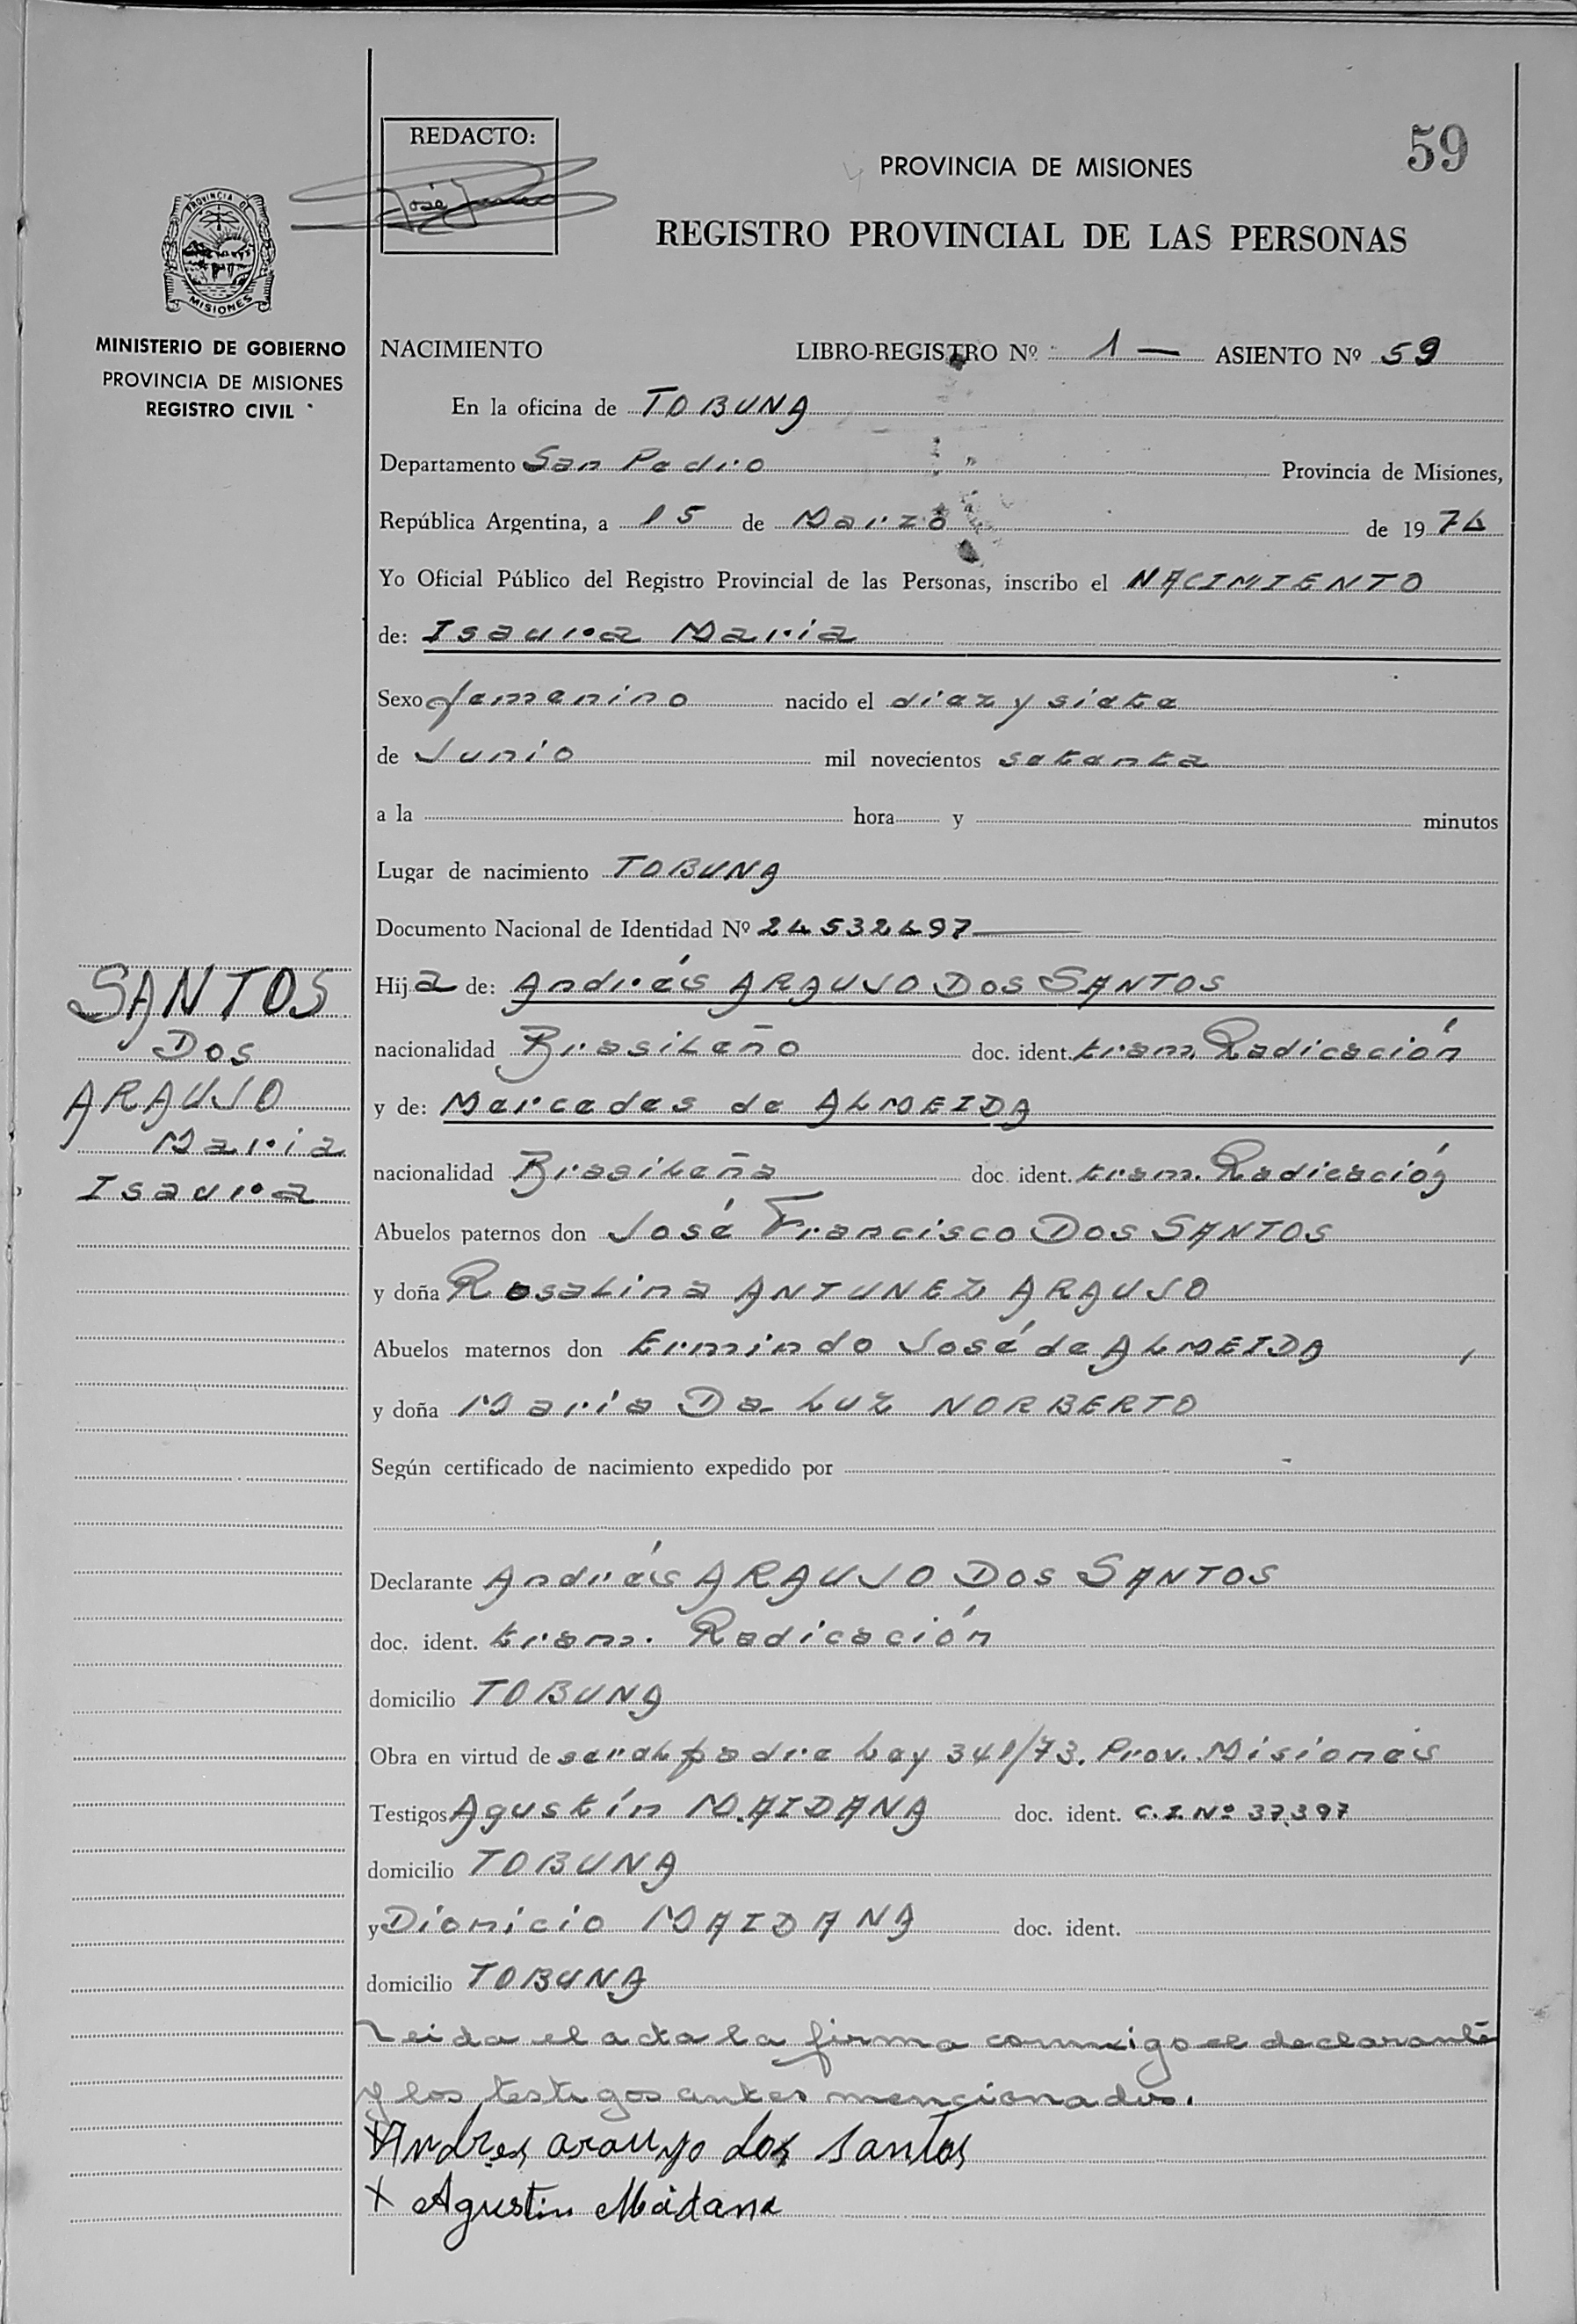 59
REDACTO:
PROVINCIA DE MISIONES
REGISTRO PROVINCIAL DE LAS PERSONAS
PROVINCIA DE
MISIONES
MINISTERIO DE GOBIERNO
PROVINCIA DE MISIONES
REGISTRO CIVIL
NACIMIENTO LIBRO-REGISTRO Nº 1 — ASIENTO Nº 59
En la oficina de TOBUNA
Departamento San Pedro Provincia de Misiones,
República Argentina, a 15 de Marzo de 1974
Yo Oficial Público del Registro Provincial de las Personas, inscribo el NACIMIENTO
de: Isaura Maria
Sexo femenino nacido el diez y siete
de Junio mil novecientos setenta
a la hora y minutos
Lugar de nacimiento TOBUNA
Documento Nacional de Identidad Nº 24532497
SANTOS
DOS
ARAUJO
Maria
Isaura
Hija de: Andrés ARAUJO DOS SANTOS
nacionalidad Brasileño doc. ident. tram. Radicación
y de: Mercedes de ALMEIDA
nacionalidad Brasileña doc ident. tram. Radicación
Abuelos paternos don José Francisco DOS SANTOS
y doña Rosalina ANTUNEZ ARAUJO
Abuelos maternos don Ermindo José de ALMEIDA
y doña Maria Da Luz NORBERTO
Según certificado de nacimiento expedido por
Declarante Andrés ARAUJO DOS SANTOS
doc. ident. tram. Radicación
domicilio TOBUNA
Obra en virtud de ser el padre Ley 341/73. Prov. Misiones
Testigos Agustín MAIDANA doc. ident. C.I. Nº 37.397
domicilio TOBUNA
y Dionicio MAIDANA doc. ident.
domicilio TOBUNA
Leida el acta la firma conmigo el declarante
y los testigos antes mencionados.
x Andres araujo dos santos
x Agustin Maidana